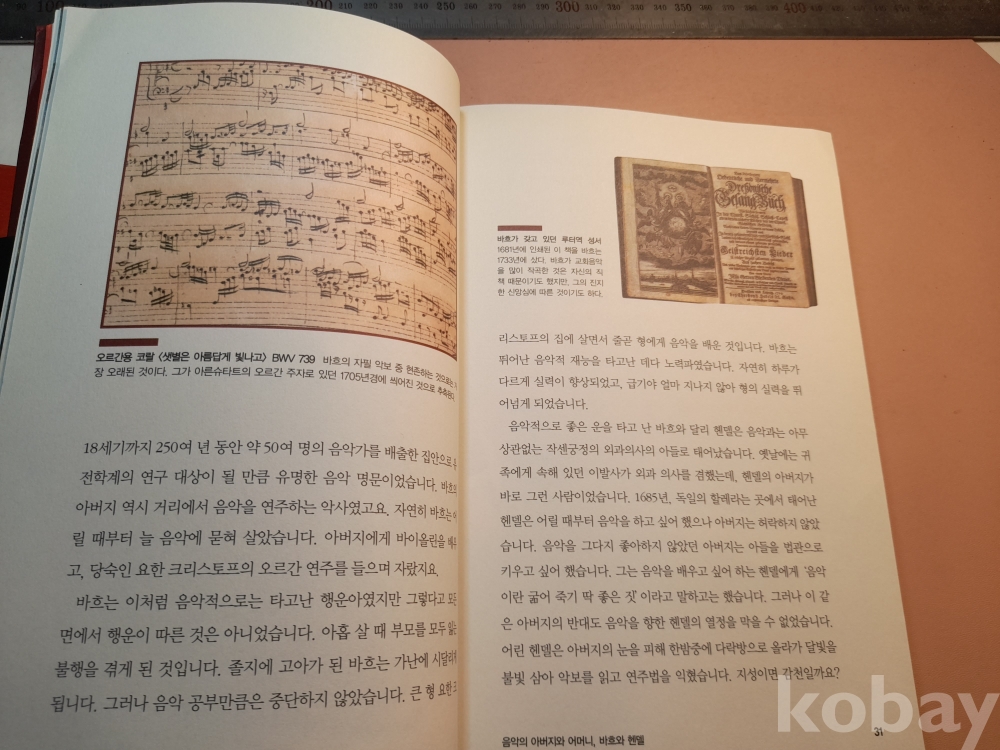 100
200
250
300
350
400
오르간용 코랄 〈샛별은 아름답게 빛나고〉 BWV 739 바흐의 자필 악보 중 현존하는 것으로는
장 오래된 것이다. 그가 아른슈타트의 오르간 주자로 있던 1705년경에 씌어진 것으로 추측된다.
18세기까지 250여 년 동안 약 50여 명의 음악가를 배출한 집안으로
전학계의 연구 대상이 될 만큼 유명한 음악 명문이었습니다. 바흐의
아버지 역시 거리에서 음악을 연주하는 악사였고요. 자연히 바흐는
릴 때부터 늘 음악에 묻혀 살았습니다. 아버지에게 바이올린을 배우
고, 당숙인 요한 크리스토프의 오르간 연주를 들으며 자랐지요.
바흐는 이처럼 음악적으로는 타고난 행운아였지만 그렇다고 모든
면에서 행운이 따른 것은 아니었습니다. 아홉 살 때 부모를 모두 잃는
불행을 겪게 된 것입니다. 졸지에 고아가 된 바흐는 가난에 시달리게
됩니다. 그러나 음악 공부만큼은 중단하지 않았습니다. 큰 형 요한
바흐가 갖고 있던 루터역 성서
1681년에 인쇄된 이 책을 바흐는
1733년에 샀다. 바흐가 교회음악
을 많이 작곡한 것은 자신의 직
책 때문이기도 했지만, 그의 진지
한 신앙심에 따른 것이기도 하다.
Dresdnische
Gesang-Buch
Geistreichsten Lieder
리스토프의 집에 살면서 줄곧 형에게 음악을 배운 것입니다. 바흐는
뛰어난 음악적 재능을 타고난 데다 노력파였습니다. 자연히 하루가
다르게 실력이 향상되었고, 급기야 얼마 지나지 않아 형의 실력을 뛰
어넘게 되었습니다.
음악적으로 좋은 운을 타고 난 바흐와 달리 헨델은 음악과는 아무
상관없는 작센궁정의 외과의사의 아들로 태어났습니다. 옛날에는 귀
족에게 속해 있던 이발사가 외과 의사를 겸했는데, 헨델의 아버지가
바로 그런 사람이었습니다. 1685년, 독일의 할레라는 곳에서 태어난
헨델은 어릴 때부터 음악을 하고 싶어 했으나 아버지는 허락하지 않았
습니다. 음악을 그다지 좋아하지 않았던 아버지는 아들을 법관으로
키우고 싶어 했습니다. 그는 음악을 배우고 싶어 하는 헨델에게 '음악
이란 굶어 죽기 딱 좋은 짓'이라고 말하고는 했습니다. 그러나 이 같
은 아버지의 반대도 음악을 향한 헨델의 열정을 막을 수 없었습니다.
어린 헨델은 아버지의 눈을 피해 한밤중에 다락방으로 올라가 달빛을
불빛 삼아 악보를 읽고 연주법을 익혔습니다. 지성이면 감천일까요?
음악의 아버지와 어머니, 바흐와 헨델
31
kobay